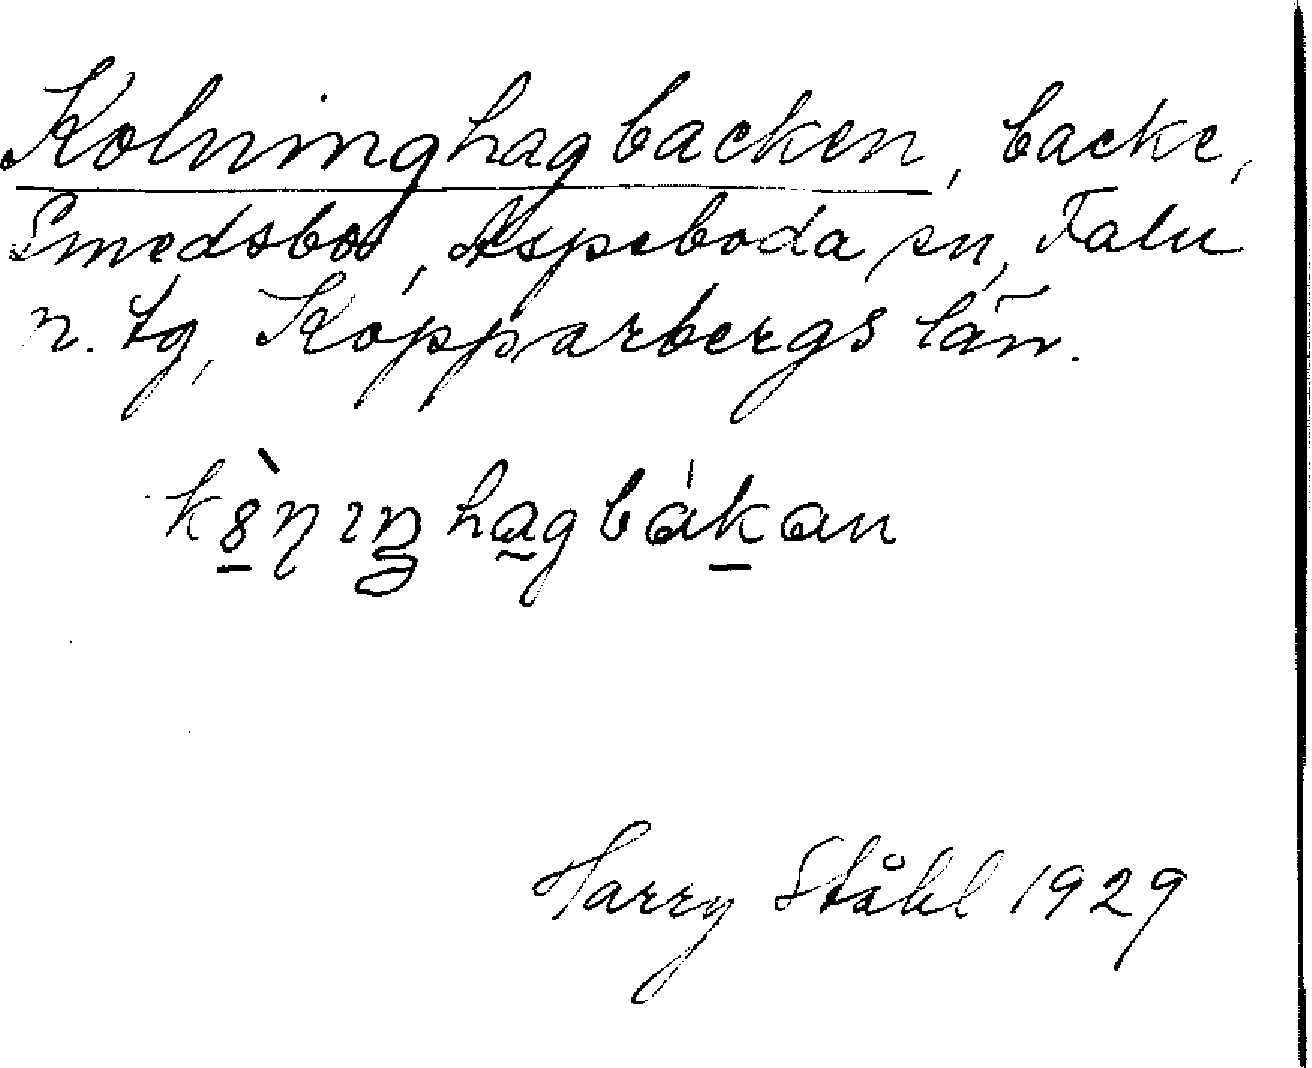 Kolninghagbacken, backe,
Smedsbo, Aspeboda sn, Falu
n. tg, Kopparbergs län.
Harry Ståhl 1929